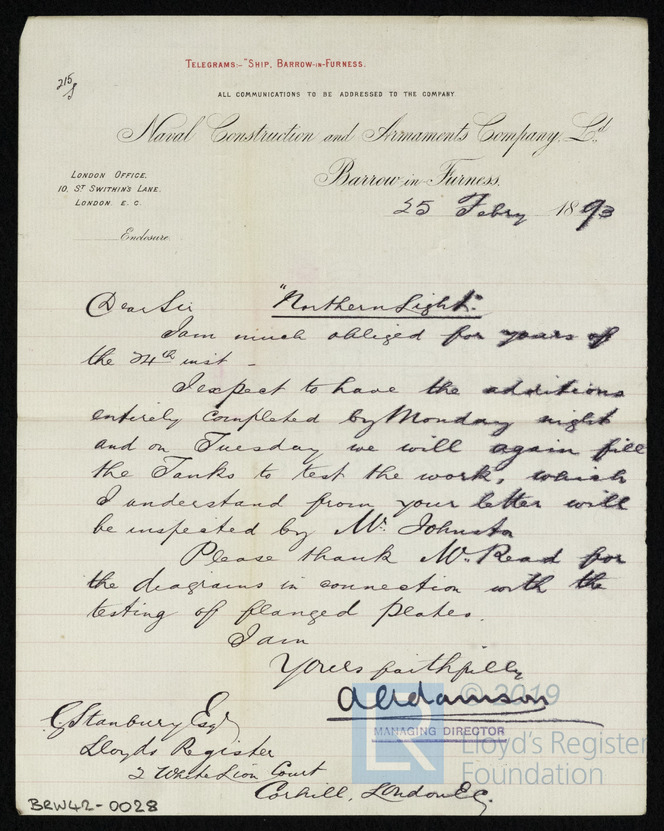 215
TELEGRAMS:- "SHIP, BARROW-IN-FURNESS.
ALL COMMUNICATIONS TO BE ADDRESSED TO THE COMPANY.
Naval Construction and Armaments Company, Ld.
Barrow-in-Furness,
LONDON OFFICE.
10, ST SWITHIN'S LANE.
LONDON. E. C.
25 Febry 1893
Enclosure
Dear Sir "Northern Light".
I am much obliged for yours of
the 24th inst -
I expect to have the additions
entirely completed by Monday night
and on Tuesday we will again fill
the Tanks to test the work, which
I understand from your letter will
be inspected by Mr. Johnston
Please thank Mr. Read for
the diagrams in connection with the
testing of flanged plates.
I am
Yours faithfully
A Adamson
MANAGING DIRECTOR
C. Stanbury Esqr
Lloyds Register
2 White Lion Court
Corhill, London E.C.
BRW42-0028
© 2019
LR
Lloyd's Register
Foundation